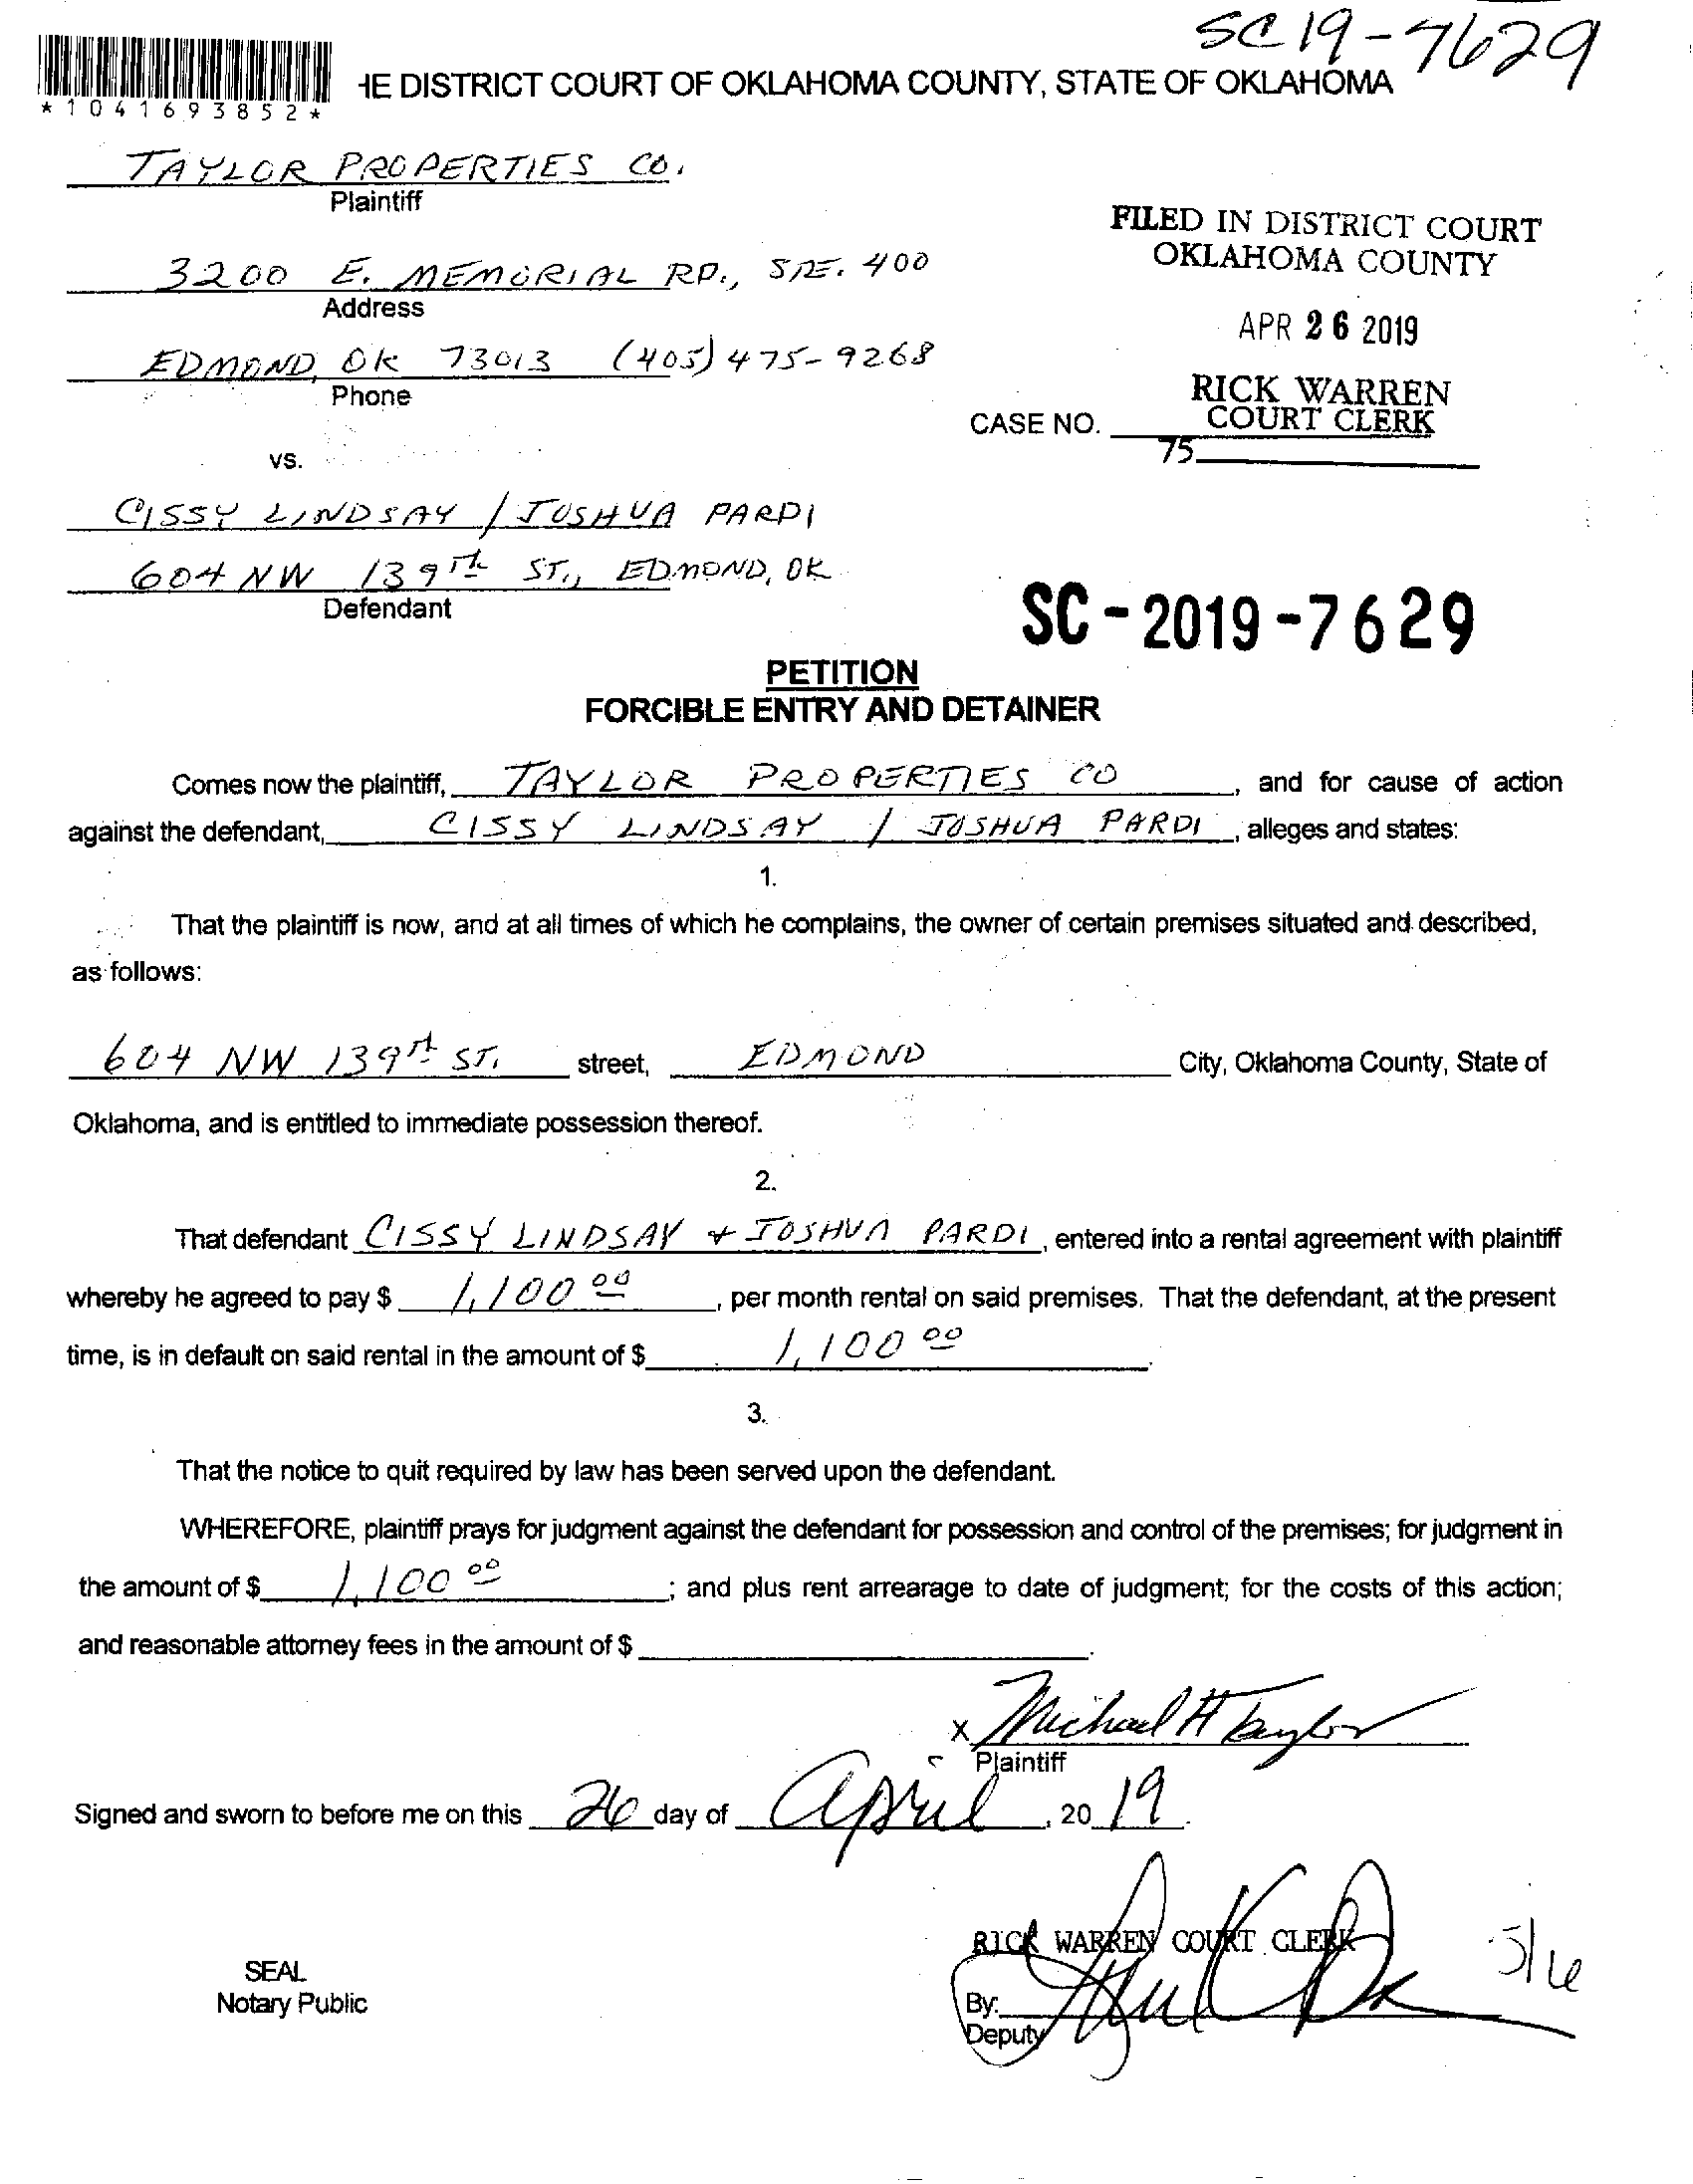 SC 19-7629
HE DISTRICT COURT OF OKLAHOMA COUNTY, STATE OF OKLAHOMA
*1041693852*
TAYLOR PROPERTIES CO.
Plaintiff
FILED IN DISTRICT COURT
OKLAHOMA COUNTY
3200 E. MEMORIAL RD., STE. 400
Address
APR 26 2019
EDMOND, OK 73013 (405) 475-9268
Phone
RICK WARREN
COURT CLERK
CASE NO.
75
vs.
CISSY LINDSAY / JOSHUA PARDI
604 NW 139TH ST., EDMOND, OK
Defendant
SC-2019-7629
PETITION
FORCIBLE ENTRY AND DETAINER
Comes now the plaintiff, TAYLOR PROPERTIES CO, and for cause of action
against the defendant, CISSY LINDSAY / JOSHUA PARDI, alleges and states:
1.
That the plaintiff is now, and at all times of which he complains, the owner of certain premises situated and described,
as follows:
604 NW 139TH ST. street, EDMOND City, Oklahoma County, State of
Oklahoma, and is entitled to immediate possession thereof.
2.
That defendant CISSY LINDSAY + JOSHUA PARDI, entered into a rental agreement with plaintiff
whereby he agreed to pay $ 1,100 00, per month rental on said premises. That the defendant, at the present
time, is in default on said rental in the amount of $ 1,100 00.
3.
That the notice to quit required by law has been served upon the defendant.
WHEREFORE, plaintiff prays for judgment against the defendant for possession and control of the premises; for judgment in
the amount of $ 1,100 00; and plus rent arrearage to date of judgment; for the costs of this action;
and reasonable attorney fees in the amount of $.
x Michael H Taylor
Plaintiff
Signed and sworn to before me on this 26 day of April, 2019.
RICK WARREN COURT CLERK
5/16
SEAL
Notary Public
By:
Deputy